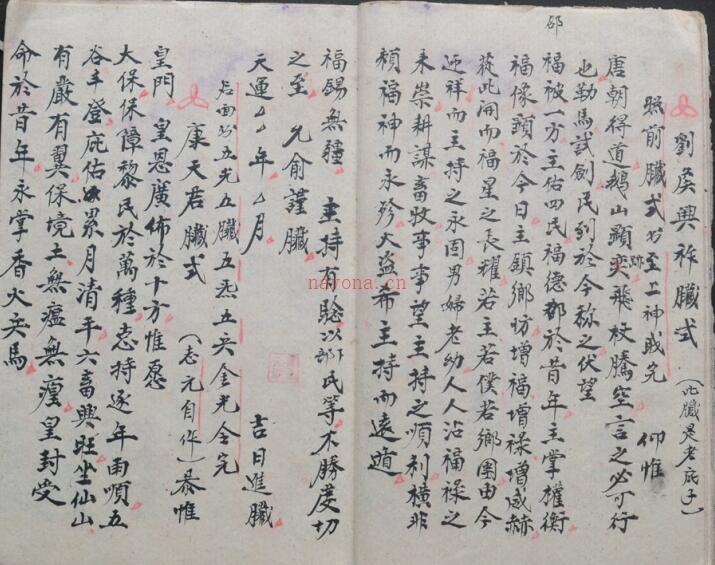 邵
劉侯興祚牘式 (此牘是老底子)
照前牘式 至上神或完 仰惟
唐朝得道鵝山顯跡奕飛杖騰空言之必可行
也勒馬試劍民到於今称之伏望
福被一方主佑四民福德 於昔年主掌權衡
福像顕於今日主鎮鄉坊增福增祿增威赫
從此開而福星之長耀若主若僕若鄉團由今
迎祥而主持之永固男婦老幼人人沾福祿之
來崇耕謀畜牧事事望主持之順利橫非
頼福神而永殄大盜希主持而遠遁
福錫無疆 主持有 以 民等不勝虔切
之至 允俞謹牘
天運厶厶年厶月 吉日進牘
五光五牘五炁五 金光全完
康天君牘式 (志元自作) 恭惟
皇門 皇恩廣佈於十方惟愿
大保保障黎民於萬種志持逐年雨順五
谷丰登庇佑累月清平六畜興旺坐仙山
有嚴有翼保境土無瘟無瘴皇封受
命於昔年永掌香火兵馬
nayona.cn